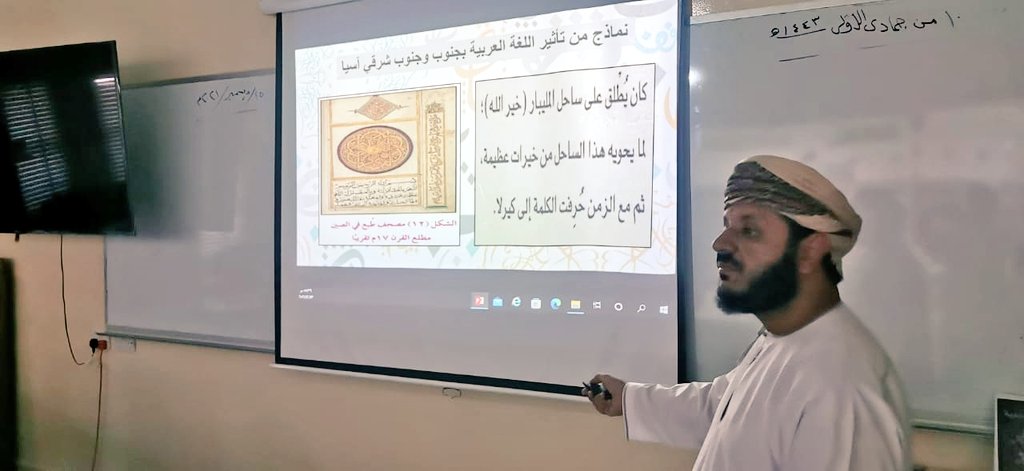 ١٠ من جمادى الأولى ١٤٤٣ه
١٥/ديسمبر/٢٠٢١م
نماذج من تأثير اللغة العربية بجنوب وجنوب شرقي آسيا
كان يُطْلق على ساحل المليبار (خير الله)؛
لما يحويه هذا الساحل من خيرات عظيمة،
ثم مع الزمن حُرِفت الكلمة إلى كيرلا.
الشكل (١٢) مصحف طُبع في الصين
مطلع القرن ١٧م تقريبًا